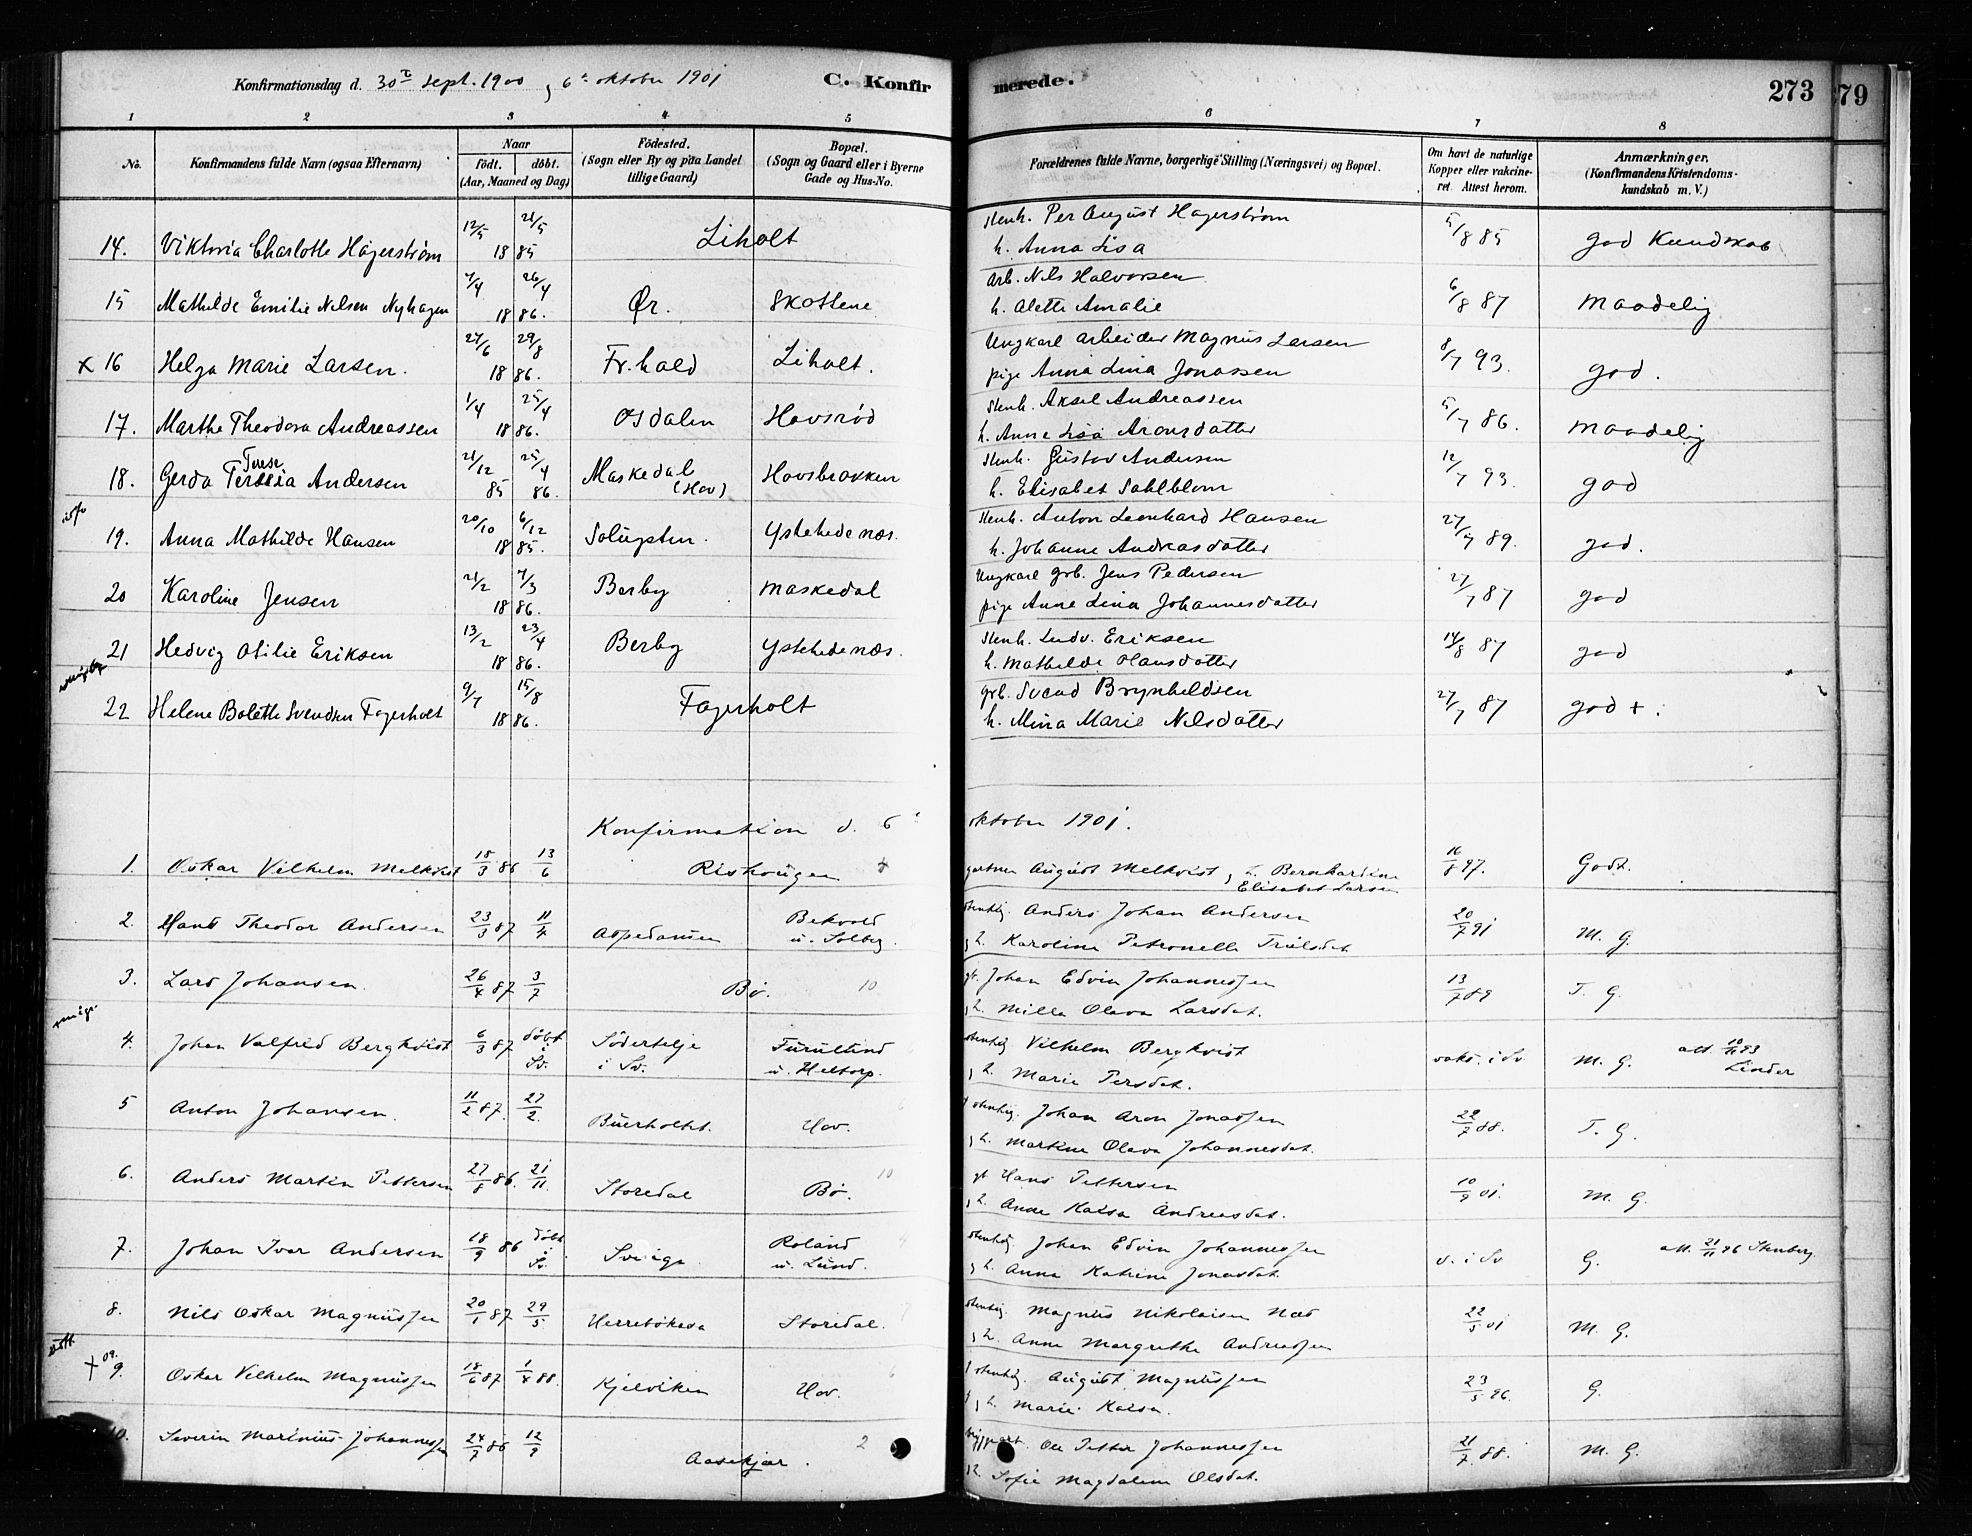 Konfirmationsdag d. 30te Sept. 1900, 6te oktober 1901 C. Konfirmerede. 273 79
1 2 3 4 5 6 7 8
No. Konfirmandens fulde Navn (ogsaa Efternavn) Naar født. døbt. (Aar, Maaned og Dag) Födested. (Sogn eller By og paa Landet tillige Gaard) Bopæl. (Sogn og Gaard eller i Byerne Gade og Hus-No. Forældrenes fulde Navne, borgerlige Stilling (Næringsvei) og Bopæl. Om havt de naturlige Kopper eller vakcineret. Attest herom. Anmærkninger. (Konfirmandens Kristendomskundskab m. V.)
14. Viktoria Charlotte Hägerstrøm 12/5 21/5 1885 Liholt Stenh. Per August Hagerstrøm h. Anna Lisa 5/8 85 god Kundskab
15 Mathilde Emilie Nilsen Nyhagen 7/4 26/4 1886. Ør. Skottene arb. Nils Halvorsen h. Alette Amalie 6/8 87 maadelig
x 16 Helga Marie Larsen. 27/6 29/8 1886. Fr.hald Liholt. Ungkarl arbeider Magnus Larsen pige Anna Lina Jonassen 8/7 93. god.
17. Marthe Theodora Andreassen 1/4 25/4 1886. Osdalen Hovsrød Stenh. Aksel Andreassen h. Anne Lisa Aronsdatter 5/7 86. maadelig
18. Gerda Terese Andersen 21/12 85 25/4 86. Maskedal (Hov) Hovsbraaten Stenh. Gustav Andersen h. Elisabet Sahlblom 12/7 93. god
19. Anna Mathilde Hansen 20/10 6/12 1885. Ystehedenæs. Stenh. Anton Leonhard Hansen h. Johanne Andreasdatter 27/7 89. god.
20 Karoline Jensen 21/2 7/3 1886. Berby Maskedal Ungkarl grb. Jens Pedersen pige Anne Lina Johannesdatter 27/7 87 god
21 Hedvig Otilie Eriksen 13/2 23/4 1886. Berby Ystehedenæs. Stenh. Ludv. Eriksen h. Mathilde Hansdatter 14/8 87 god
22 Helene Bolette Svendsen Fagerholt 9/7 15/8 1886. Fagerholt grb. Svend Brynhildsen h. Mina Marie Nilsdatter 27/7 87 god +.
Konfirmation d. 6te oktober 1901.
1. Oskar Vilhelm Melkvist 18/3 86 13/6 Rishaugen gartner August Melkvist, h. Bernhardine Elisabet Larsen 16/8 97. Godt.
2. Hans Theodor Andersen 23/3 87 11/4 Aspedamen Bekvold u. Solberg stenhg. Anders Johan Andersen , h. Karoline Petronelle 20/7 91 M. G.
3. Lars Johansen. 26/4 87 3/7 Bø. 10 gb. Johan Edvin Johannessen , h. Milla Olava Larsdat. 13/7 89 T. G.
4. Johan Valfred Bergkvist 6/3 87 döbt i Sv. Södertelje i Sv. Furulund u. Heltorp. stenhg Vilhelm Bergkvist , h. Marie Persdat. vaks. i Sv M. G. att. 10/11 93 Linder
5 Anton Johansen. 11/2 87. 27/2. Buerholtet. Hov. stenhg. Johan Aron Jonassen , h. Martine Olava Johannesdat. 22/7 88. T. G.
6. Anders Martin Pettersen 27/8 86. 21/11. Storedal Bø. 10 gb Hans Pettersen , h. Anne Kaisa Andreasdat. 10/9 01. M. G.
7. Johan Ivar Andersen 18/9 86 döbt i Sv. Sverige Roland u. Lund. stenhg Johan Edvin Johannessen , h. Anna Katrine Jonasdat. v. i Sv G. att. 21/11 96 Stenberg
8. Nils Oskar Magnussen 20/1 87 29/5 Herrebøkasa Storedal. stenhg. Magnus Nikolaisen Næs , h. Anne Margrethe Andreassen 22/5 01 M. G.
+ 9. Oskar Vilhelm Magnussen 18/6 87 1/4 88. Kjelviken Hov. stenhg. August Magnussen , h. Marie Kaisa. 23/5 96. G.
10. Severin Marinius Johannessen 24/7 86 12/9 Aasekjær. 2 Ole Petter Johannessen , h. Sofie Magdalene Olsdat. 21/7 88. M. G.